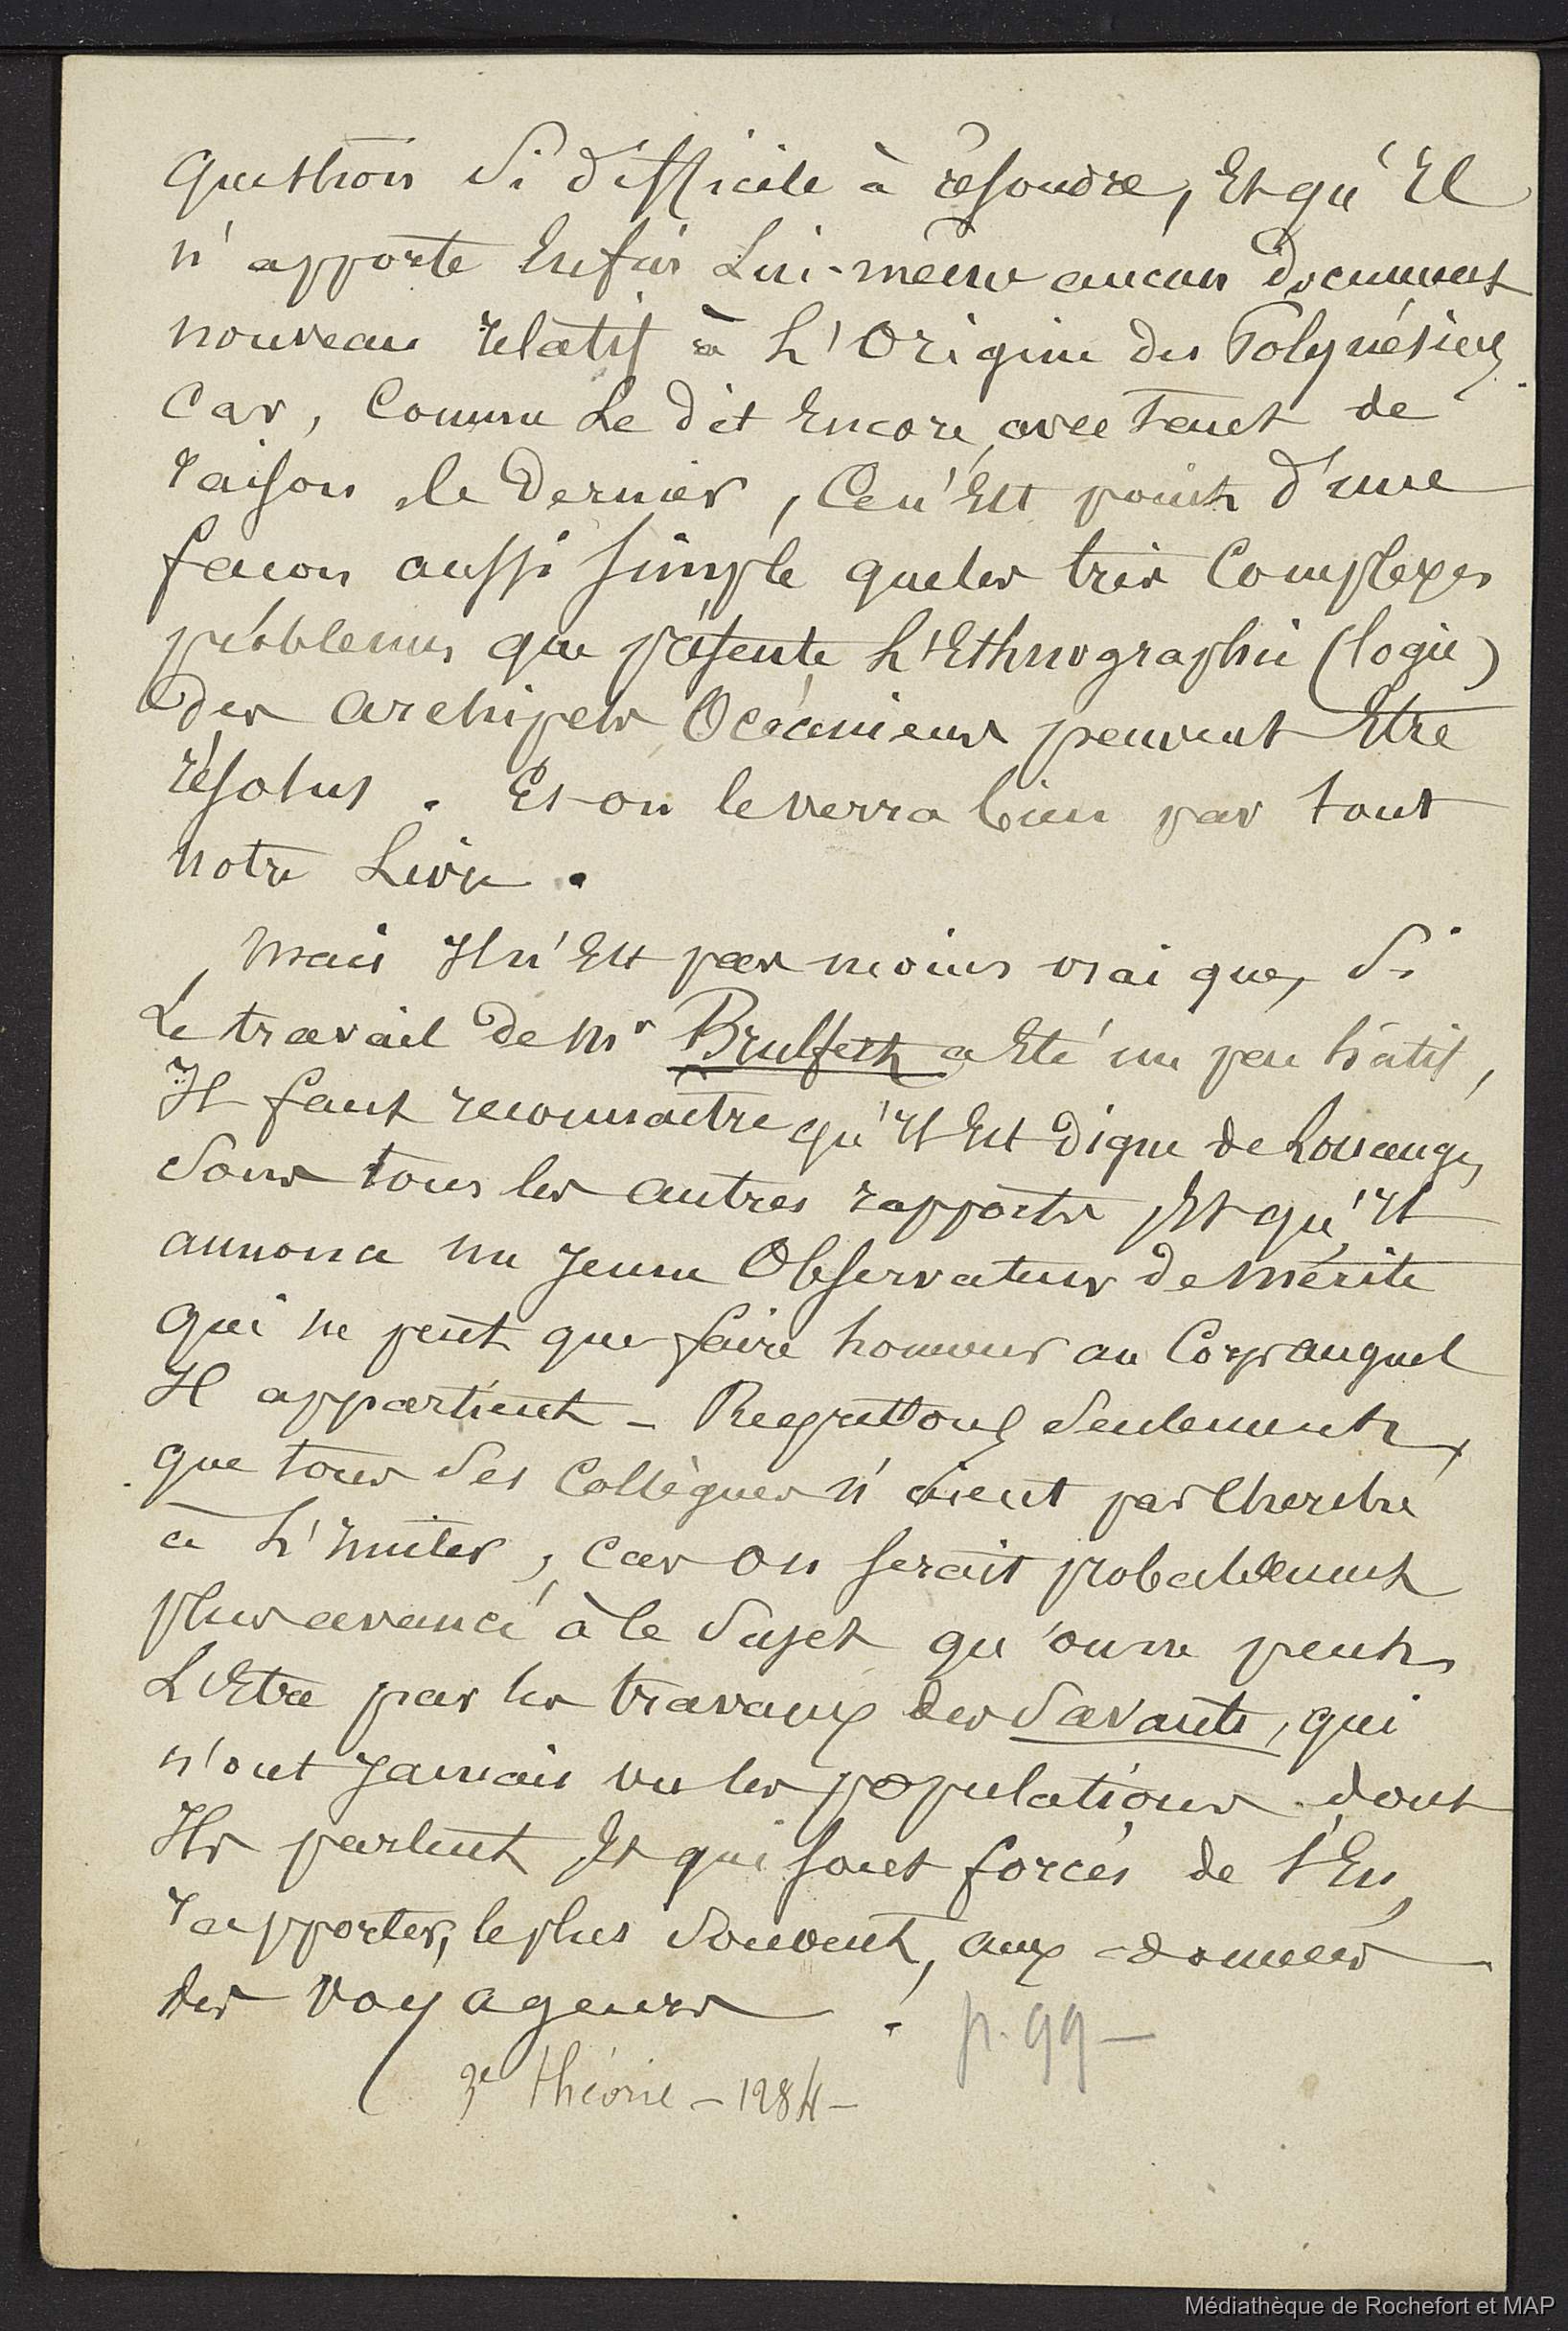 question si difficile à résoudre, Et qu'Il
n'apporte Enfin Lui-même aucun document
nouveau relatif à L'Origine des Polynésiens.
Car, Comme Le dit Encore, avec tant de
raison, le dernier, Ce n'Est point d'une
façon aussi simple que les très Complexes
problèmes que présente L'Ethnographie (logie)
des archipels Océaniens peuvent Etre
résolus. Et on le verra bien par tout
notre Livre.
Mais Il n'Est pas moins vrai que, Si
Le travail de Mr Brulfert a Eté un peu hâtif,
Il faut reconnaître qu'Il Est digne de Louanges
Sous tous les autres rapports Et qu'Il
annonce un jeune Observateur de mérite
qui ne peut que faire honneur au Corps auquel
Il appartient - Regrettons Seulement,
que tous Ses Collègues n'aient pas Cherché
à L'Imiter, car on serait probablement
plus avancé à ce Sujet qu'on ne peut
L'Etre par les travaux des Savants, qui
n'ont Jamais vu les populations dont
Ils parlent Et qui sont forcés de s'En
rapporter, le plus Souvent, aux données
des voyageurs !
p. 99 -
3e théorie - 1284 -
Médiathèque de Rochefort et MAP